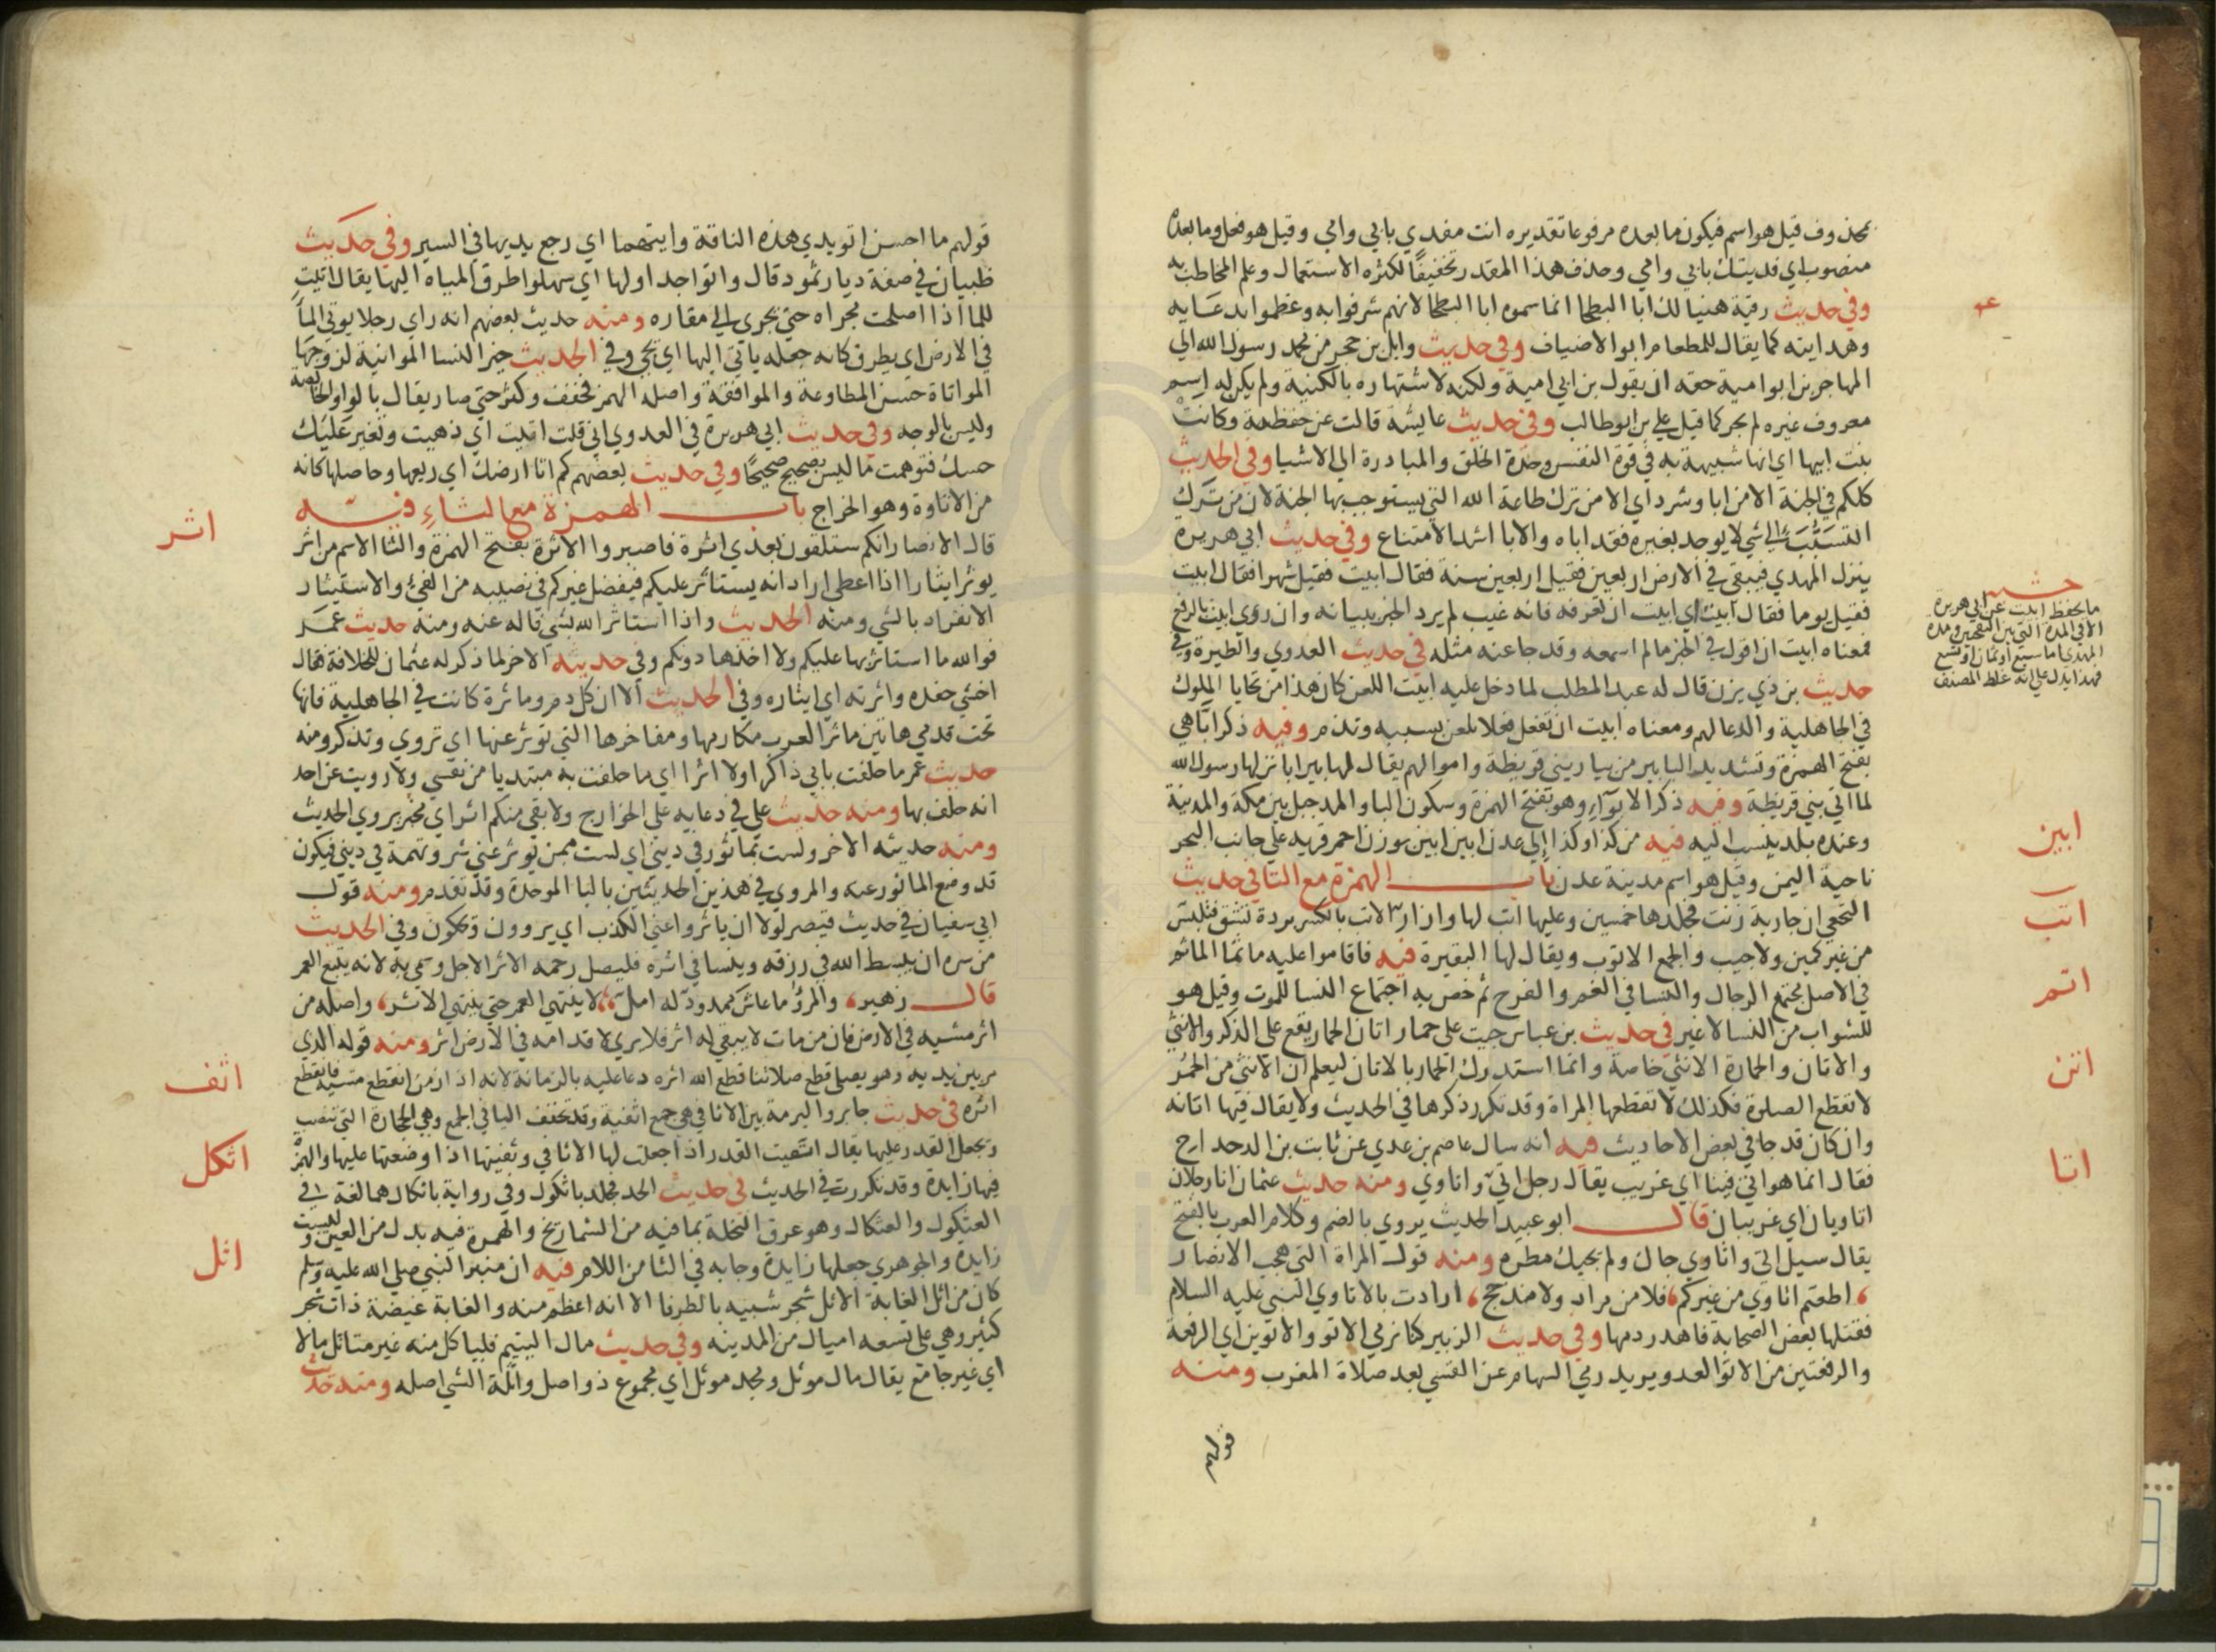 محذوف قيل هو اسم فيكون ما بعده مرفوعا تقديره انت مفدي بابي وامي وقيل هو فعل وما بعده
منصوب اي فديتك بابي وامي وحذف هذا المقدر تخفيفا لكثرة الاستعمال وعلم المخاطب به
وفي حديث رقية هنيا لك ابا البطحا انما سموه ابا البطحا لانهم شرفوا به وعظموا بدعايه
وهدايته كما يقال للمطعام ابو الاضياف وفي حديث وايل بن حجر من محمد رسول الله الي
المهاجر بن ابو امية حقه ان يقول بن ابي امية ولكنه لاشتهاره بالكنية ولم يكن له اسم
معروف غيره لم يجر كما قيل علي بن ابو طالب وفي حديث عايشة قالت عن حفظة وكانت
بنت ابيها اي انها شبيهة به في قوة النفس وحدة الخلق والمبادرة الي الاشيا وفي الحديث
كلكم في الجنة الا من ابا وشرد اي الا من ترك طاعة الله التي يستوجب بها الجنة لان من ترك
التسبب الي شي لا يوجد بغيره فقد اباه والابا اشد الامتناع وفي حديث ابي هريرة
ينزل المهدي فيبقي في الارض اربعين فقيل اربعين سنة فقال ابيت فقيل شهرا فقال ابيت
فقيل يوما فقال ابيت اي ابيت ان تعرفه فانه غيب لم يرد الخبر ببيانه وان روي ابيت بالرفع
فمعناه ابيت ان اقول في الخبر مالم اسمعه وقد جا عنه مثله في حديث العدوي والطيرة وفي
حديث بن ذي يزن قال له عبد المطلب لما دخل عليه ابيت اللعن كان هذا من تحايا الملوك
في الجاهلية والدعا لهم ومعناه ابيت ان تفعل فعلا تلعن بسببه وتذم وفيه ذكر ابا هي
بفتح الهمزة وتشديد البا بير من بيار بني قريظة واموالهم يقال لها بير ابا نزلها رسول الله
لما اتي بني قريظة وفيه ذكر الابواء وهو بفتح الهمزة وسكون البا والمد جبل بين مكة والمدينة
وعنده بلد ينسب اليه فيه من كذا وكذا الي عدن ابين ابين بوزن احمر قريه علي جانب البحر
ناحية اليمن وقيل هو اسم مدينة عدن باب الهمزة مع التا في حديث
النخعي ان جارية زنت فجلدها خمسين وعليها اتب لها وازار الاتب بالكسر بردة تشق فتلبس
من غير كمين ولا جيب والجمع الاتوب ويقال لها البقيرة فيه فاقاموا عليه ماتما الماتم
في الاصل مجتمع الرجال والنسا في الغم والفرح ثم خص به اجتماع النسا للموت وقيل هو
للشواب من النسا لا غير في حديث بن عباس جيت علي حمار اتان الحمار يقع علي الذكر والانثي
والاتان والحمارة الانثي خاصة وانما استدرك الحمار بالاتان ليعلم ان الانثي من الحمر
لا تقطع الصلوة فكذلك لا تقطعها المراة وقد تكرر ذكرها في الحديث ولا يقال فيها اتانه
وان كان قد جا في بعض الاحاديث فيه انه سال عاصم بن عدي عن ثابت بن الدحداح
فقال انما هو اتي فينا اي غريب يقال رجل اتي واتاوي ومنه حديث عثمان انا رجلان
اتاويان اي غريبان قال ابو عبيد الحديث يروي بالضم وكلام العرب بالفتح
يقال سيل اتي واتاوي جاك ولم يجيك مطره ومنه قول المراة التي هجت الانصار
اطعتم اتاوي من غيركم فلا من مراد ولا مذحج ارادت بالاتاوي النبي عليه السلام
فقتلها بعض الصحابة فاهدر دمها وفي حديث الزبير كنا نرمي الاتو والاتوين اي الدفعة
والدفعتين من الاتو العدو يريد رمي السهام عن القسي بعد صلاة المغرب ومنه
قولهم
حشيه
ما يحفظ ابيت عن ابي هريرة
الا في المدة التي بين النفختين ومدة
المهدي اما سبع او ثمان او تسع
فهذا يدل علي انه غلط المصنف
ابين
اتب
اتم
اتن
اتا
قولهم ما احسن اتو يدي هذه الناقة وايتهما اي رجع يديها في السير وفي حديث
ظبيان في صفة ديار ثمود قال واتوا جداولها اي سهلوا طرق المياه اليها يقال اتيت
للما اذا اصلحت مجراه حتي يجري الي مقاره ومنه حديث بعضهم انه راي رجلا يوتي الما
في الارض اي يطرق كانه جعله ياتي اليها اي يجي وفي الحديث خير النسا المواتية لزوجها
المواتاة حسن المطاوعة والموافقة واصله الهمز فخفف وكثر حتي صار يقال بالواو الخالصة
وليس بالوجه وفي حديث ابي هريرة في العدوي اني قلت اتيت اي ذهبت وتغير عليك
حسك فتوهمت ما ليس بصحيح صحيحا وفي حديث بعضهم كم اتا ارضك اي ريعها وحاصلها كانه
من الاتاوة وهو الخراج باب الهمزة مع الثاء فيه
قال الانصار انكم ستلقون بعدي اثرة فاصبروا الاثرة بفتح الهمزة والثا الاسم من اثر
يوثر ايثارا اذا اعطي اراد انه يستاثر عليكم فيفضل غيركم في نصيبه من الفيئ والاستيثار
الانفراد بالشي ومنه الحديث واذا استاثر الله بشي فاله عنه ومنه حديث عمر
فوالله ما استاثر بها عليكم ولا اخذها دونكم وفي حديثه الاخر لما ذكر له عثمان للخلافة فقال
اخشي حفده واثرته اي ايثاره وفي الحديث الا ان كل دم وماثرة كانت في الجاهلية فانها
تحت قدمي هاتين ماثر العرب مكارمها ومفاخرها التي توثر عنها اي تروي وتذكر ومنه
حديث عمر ما حلفت بابي ذاكرا ولا اثرا اي ما حلفت به مبتديا من نفسي ولا رويت عن احد
انه حلف بها ومنه حديث علي في دعايه علي الخوارج ولا بقي منكم اثر اي مخبر يروي الحديث
ومنه حديثه الاخر ولست بماثور في ديني اي لست ممن يوثر عني شر وتهمة في ديني فيكون
قد وضع الماثور عنه والمروي في هذين الحديثين بالبا الموحدة وقد تقدم ومنه قول
ابي سفيان في حديث قيصر لولا ان ياثروا عني الكذب اي يروون ويحكون وفي الحديث
من سره ان يبسط الله في رزقه وينسا في اثره فليصل رحمه الاثر الاجل وسمي به لانه يتبع العمر
قال زهير، والمرؤ ما عاش ممدود له امل، لا ينتهي العمر حتي ينتهي الاثر، واصله من
اثر مشيه في الارض فان من مات لا يبقي له اثر فلا يري لاقدامه في الارض اثر ومنه قوله للذي
مر بين يديه وهو يصلي قطع صلاتنا قطع الله اثره دعا عليه بالزمانة لانه اذا زمن انقطع مشيه فانقطع
اثره في حديث جابر والبرمة بين الاثافي هي جمع اثفية وقد تخفف اليا في الجمع وهي الحجارة التي تنصب
وتجعل القدر عليها يقال اثفيت القدر اذا جعلت لها الاثافي وثفيتها اذا وضعتها عليها والهمزة
فيها زايدة وقد تكررت في الحديث في حديث الحد فجلد باثكول وفي رواية باثكال هما لغة في
العثكول والعثكال وهو عرق النخلة بما فيه من الشماريخ والهمزة فيه بدل من العين وليست
زايدة والجوهري جعلها زايدة وجا به في الثا من اللام فيه ان منبر النبي صلي الله عليه وسلم
كان من اثل الغابة الاثل شجر شبيه بالطرفا الا انه اعظم منه والغابة غيضة ذات شجر
كثير وهي علي تسعه اميال من المدينه وفي حديث مال اليتيم فلياكل منه غير متاثل مالا
اي غير جامع يقال مال موثل ومجد موثل اي مجموع ذو اصل واثلة الشي اصله ومنه حديث
اثر
اثف
اثكل
اثل